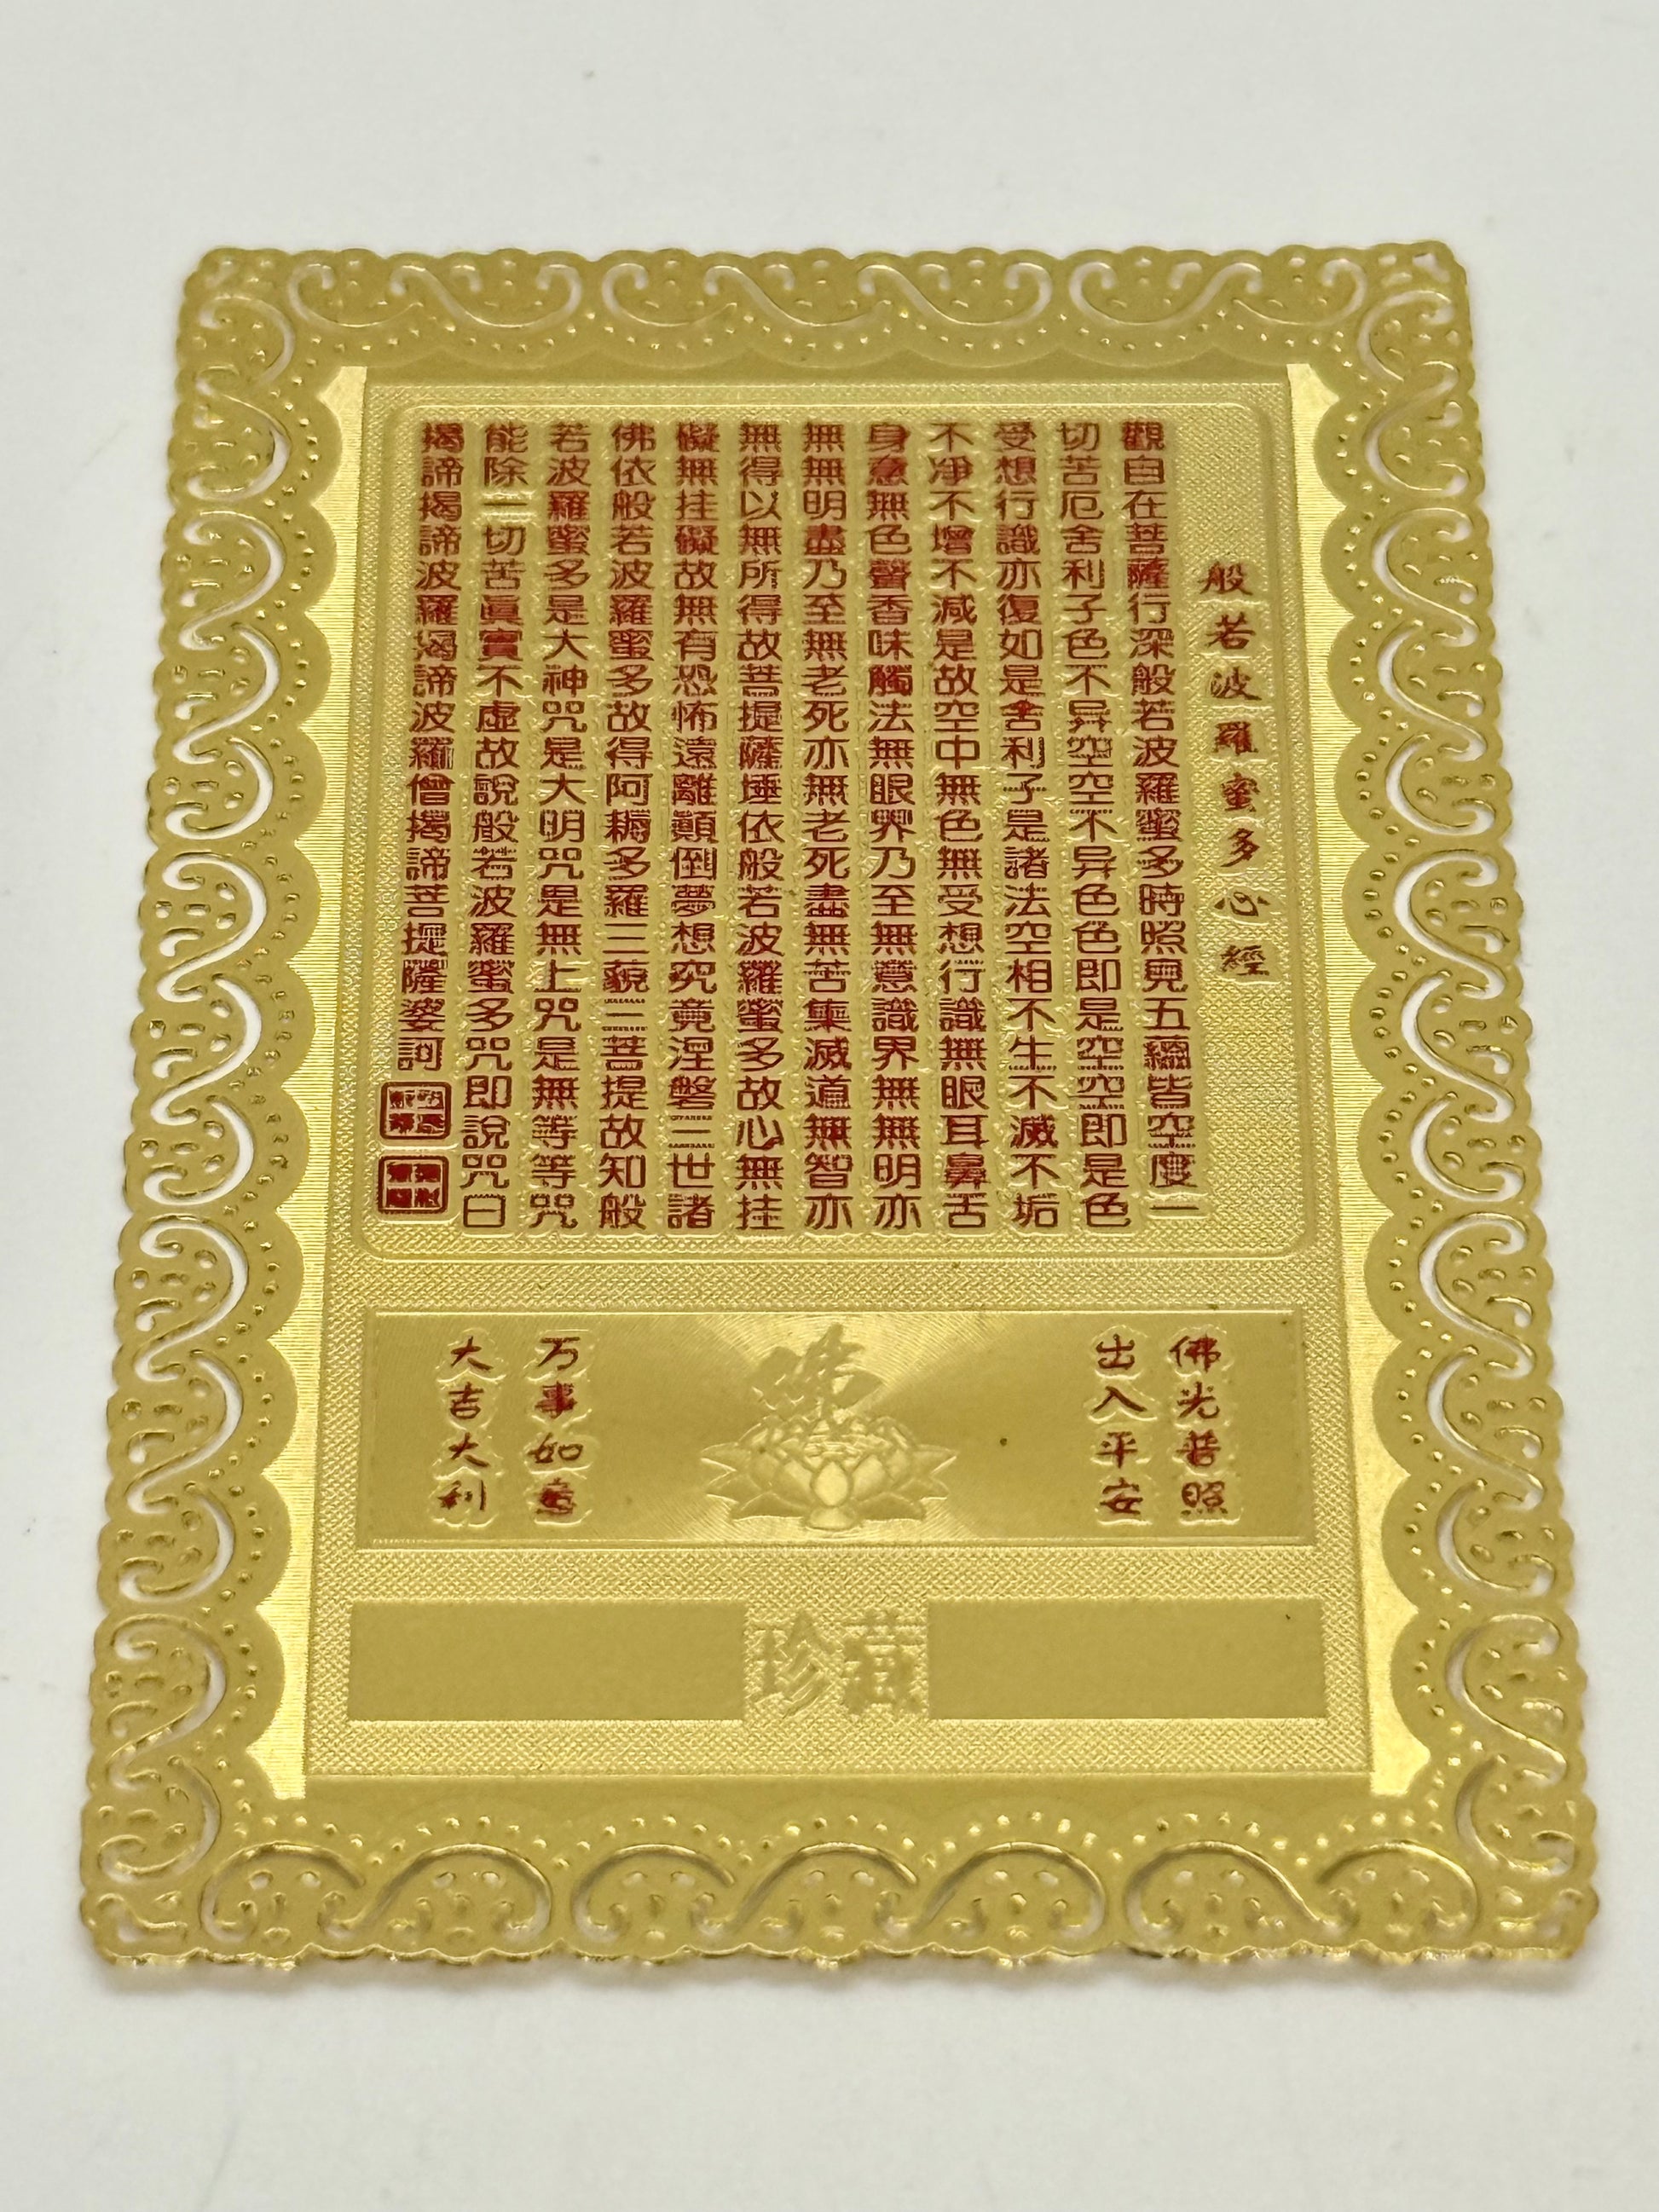 般若波羅蜜多心經
觀自在菩薩行深般若波羅蜜多時照見五蘊皆空度一
切苦厄舍利子色不异空空不异色色即是空空即是色
受想行識亦復如是舍利子是諸法空相不生不滅不垢
不净不增不減是故空中無色無受想行識無眼耳鼻舌
身意無色聲香味觸法無眼界乃至無意識界無無明亦
無無明盡乃至無老死亦無老死盡無苦集滅道無智亦
無得以無所得故菩提薩埵依般若波羅蜜多故心無挂
礙無挂礙故無有恐怖遠離顛倒夢想究竟涅磐三世諸
佛依般若波羅蜜多故得阿耨多羅三藐三菩提故知般
若波羅蜜多是大神咒是大明咒是無上咒是無等等咒
能除一切苦眞實不虛故說般若波羅蜜多咒即說咒曰
揭諦揭諦波羅揭諦波羅僧揭諦菩提薩婆訶
佛光普照
出入平安
佛
万事如意
大吉大利
珍藏